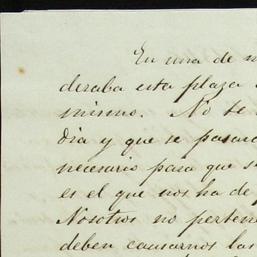 En una de m
deraba esta plaza
mismo. No te
dia y que se pasara
necesario para que s
es el que nos ha de
Nosotros no perten
deben causarnos las